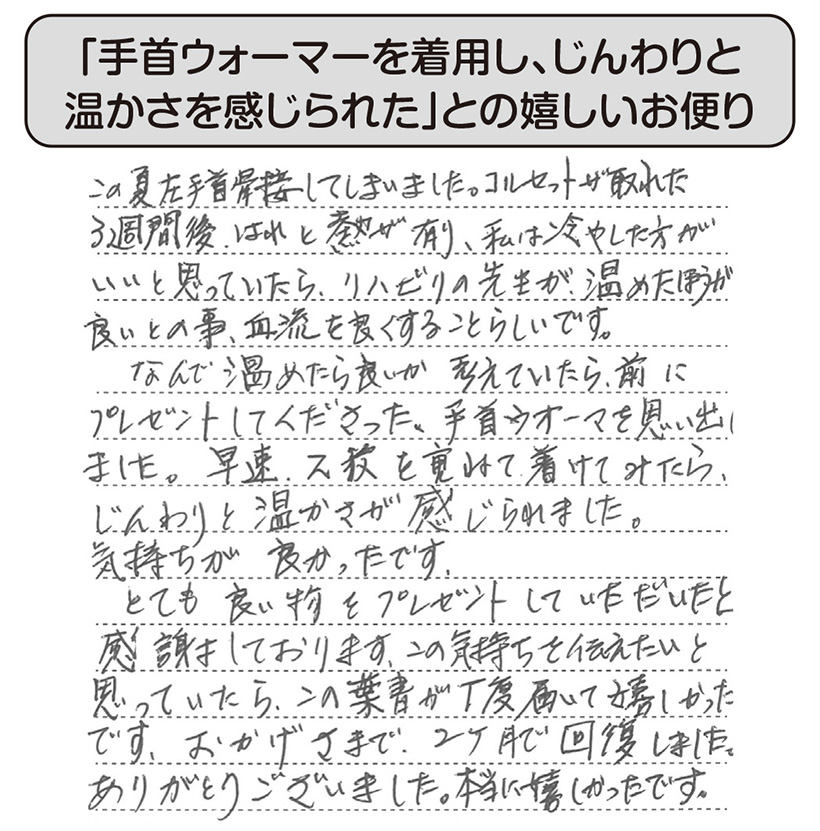 「手首ウォーマーを着用し、じんわりと
温かさを感じられた」との嬉しいお便り
この夏左手首骨接してしまいました。コルセットが取れた
3週間後、はれと熱が有り、私は冷やした方が
いいと思っていたら、リハビリの先生が、温めたほうが
良いとの事、血流を良くすることらしいです。
なんで温めたら良いか 考えていたら、前に
プレゼントしてくださった、手首ウオーマを思い出し
ました。早速、2枚を重ねて着けてみたら、
じんわりと温かさが感じられました。
気持ちが 良かったです、
とても良い物をプレゼントしていただいたと
感謝しております、この気持ちを伝えたいと
思っていたら、この葉書が丁度届いて嬉しかった
です、おかげさまで、2ヶ月で回復しました。
ありがとうございました。本当に嬉しかったです。